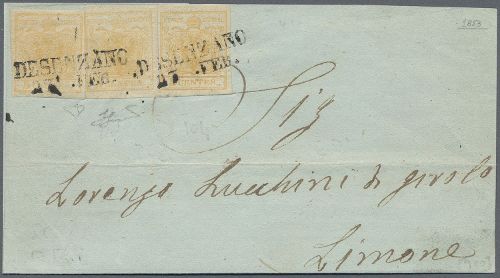 1853
DESENZANO DESENZANO
27 .FEB. 27 .FEB.
Sig
Lorenzo Lucchini di Girolo
Limone